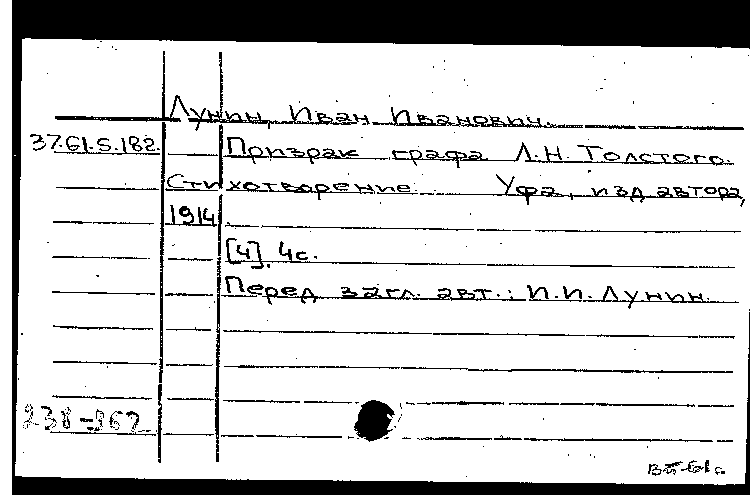 Лунин, Иван Иванович.
37.61.5.182. Призрак графа Л.Н. Толстого.
Стихотворение. Уфа, изд автора,
1914.
[4], 4с.
Перед загл. авт.: И.И. Лунин.
238-367